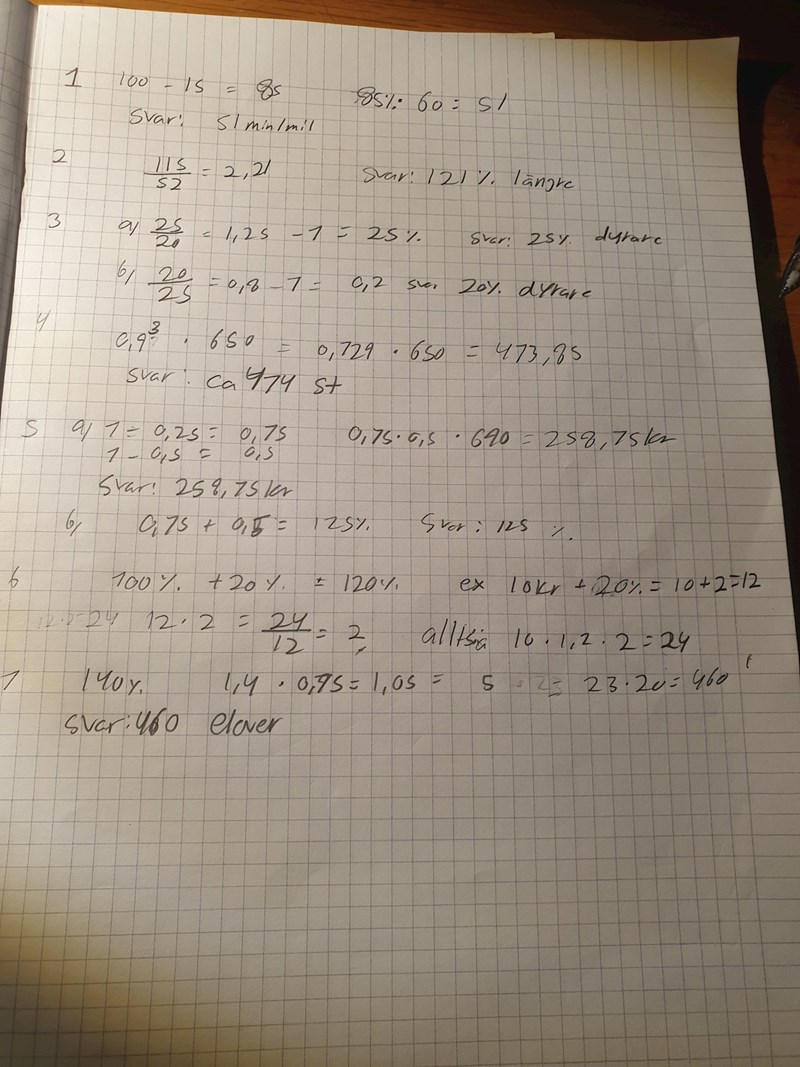 1 100 - 15 = 85 85%· 60 = 51
Svar: 51 min/mil
2 115/52 = 2,21 Svar: 121 % längre
3 a) 25/20 = 1,25 - 1 = 25 % svar: 25% dyrare
b) 20/25 = 0,8 - 1 = 0,2 svar 20% dyrare
4 0,9³ · 650 = 0,729 · 650 = 473,85
svar: ca 474 st
5 a) 1 = 0,25 = 0,75 0,75·0,5 · 690 = 258,75kr
1 - 0,5 = 0,5
Svar: 258,75kr
b) 0,75 + 0,5 = 125% Svar: 125 %.
6 100%. +20%. = 120%. ex 10kr + 20% = 10+2=12
12·2=24 12·2 = 24/12 = 2 alltså 10·1,2·2=24
7 140%. 1,4 · 0,75 = 1,05 = 5 = 23·20 = 460
svar: 460 elever